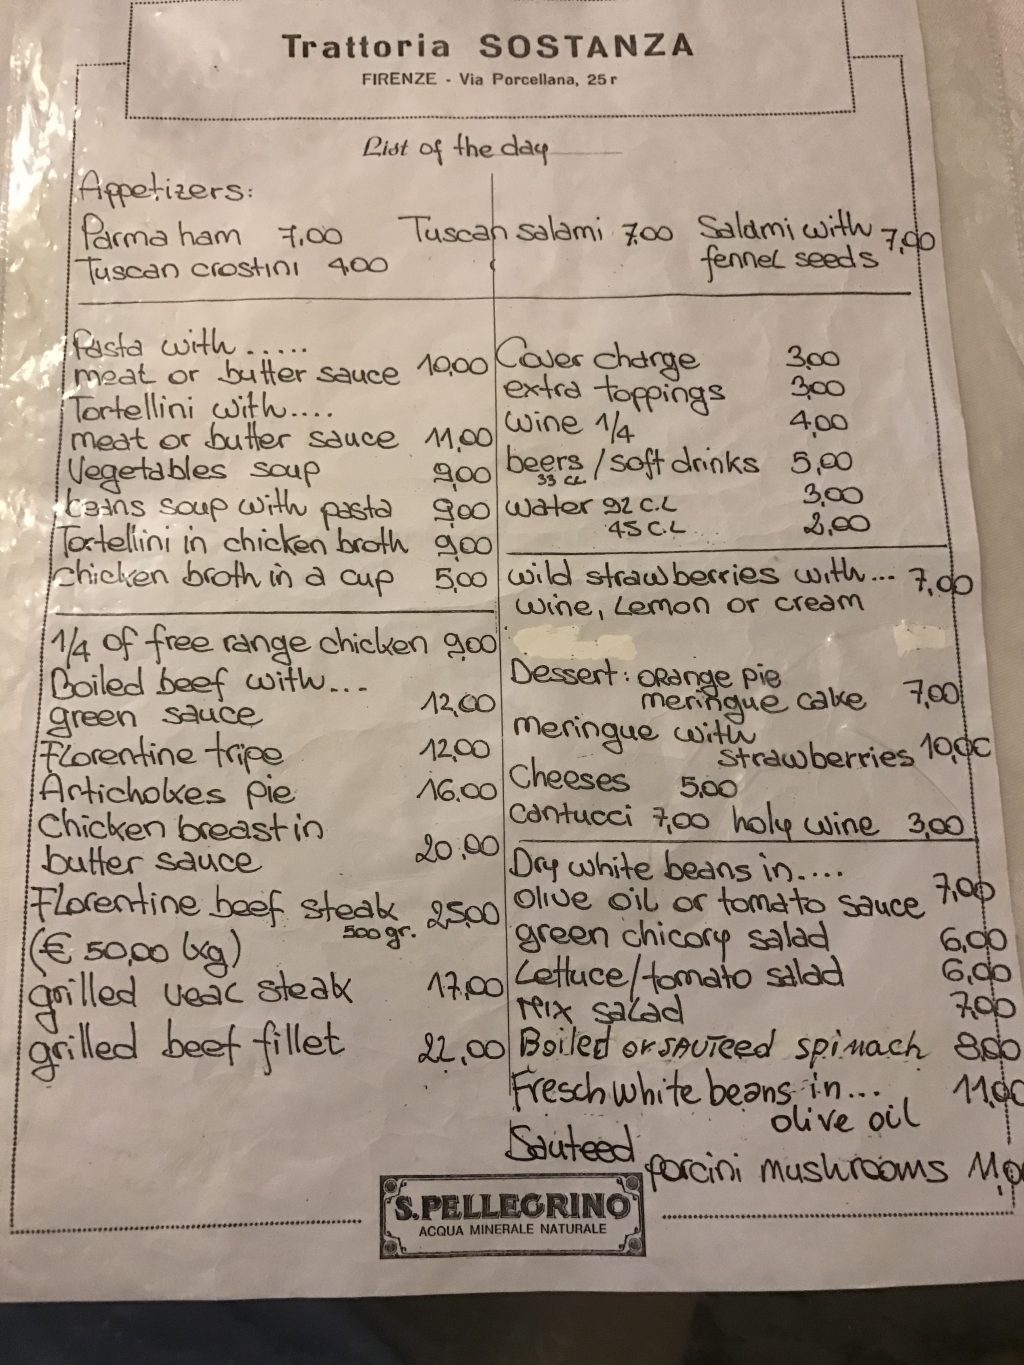 Trattoria SOSTANZA
FIRENZE - Via Porcellana, 25 r
List of the day
Appetizers:
Parma ham 7,00 Tuscan salami 7.00 Salami with
fennel seeds 7,00
Tuscan crostini 4,00
Pasta with .....
meat or butter sauce 10,00
Tortellini with....
meat or butter sauce 11,00
Vegetables soup 9,00
beans soup with pasta 9,00
Tortellini in chicken broth 9,00
Chicken broth in a cup 5,00
1/4 of free range chicken 9,00
Boiled beef with...
green sauce 12,00
Florentine tripe 12,00
Artichokes pie 16.00
Chicken breast in
butter sauce 20,00
Florentine beef steak 25,00
500 gr.
(€ 50,00 kg)
grilled veal steak 17,00
grilled beef fillet 22,00
Cover charge 3,00
extra toppings 3,00
wine 1/4 4,00
beers / soft drinks 5,00
33 CL.
water 92 C.L 3,00
45 C.L 2,00
wild strawberries with... 7,00
wine, Lemon or cream
Dessert: orange pie
meringue cake 7,00
meringue with
strawberries 10,00
Cheeses 5,00
Cantucci 7,00 holy wine 3,00
Dry white beans in....
olive oil or tomato sauce 7,00
green chicory salad 6,00
Lettuce/tomato salad 6,00
Mix salad 7,00
Boiled or SAUTEED spinach 8,00
Fresch white beans in... 11,00
olive oil
Sauteed
porcini mushrooms 11,0
S.PELLEGRINO
ACQUA MINERALE NATURALE